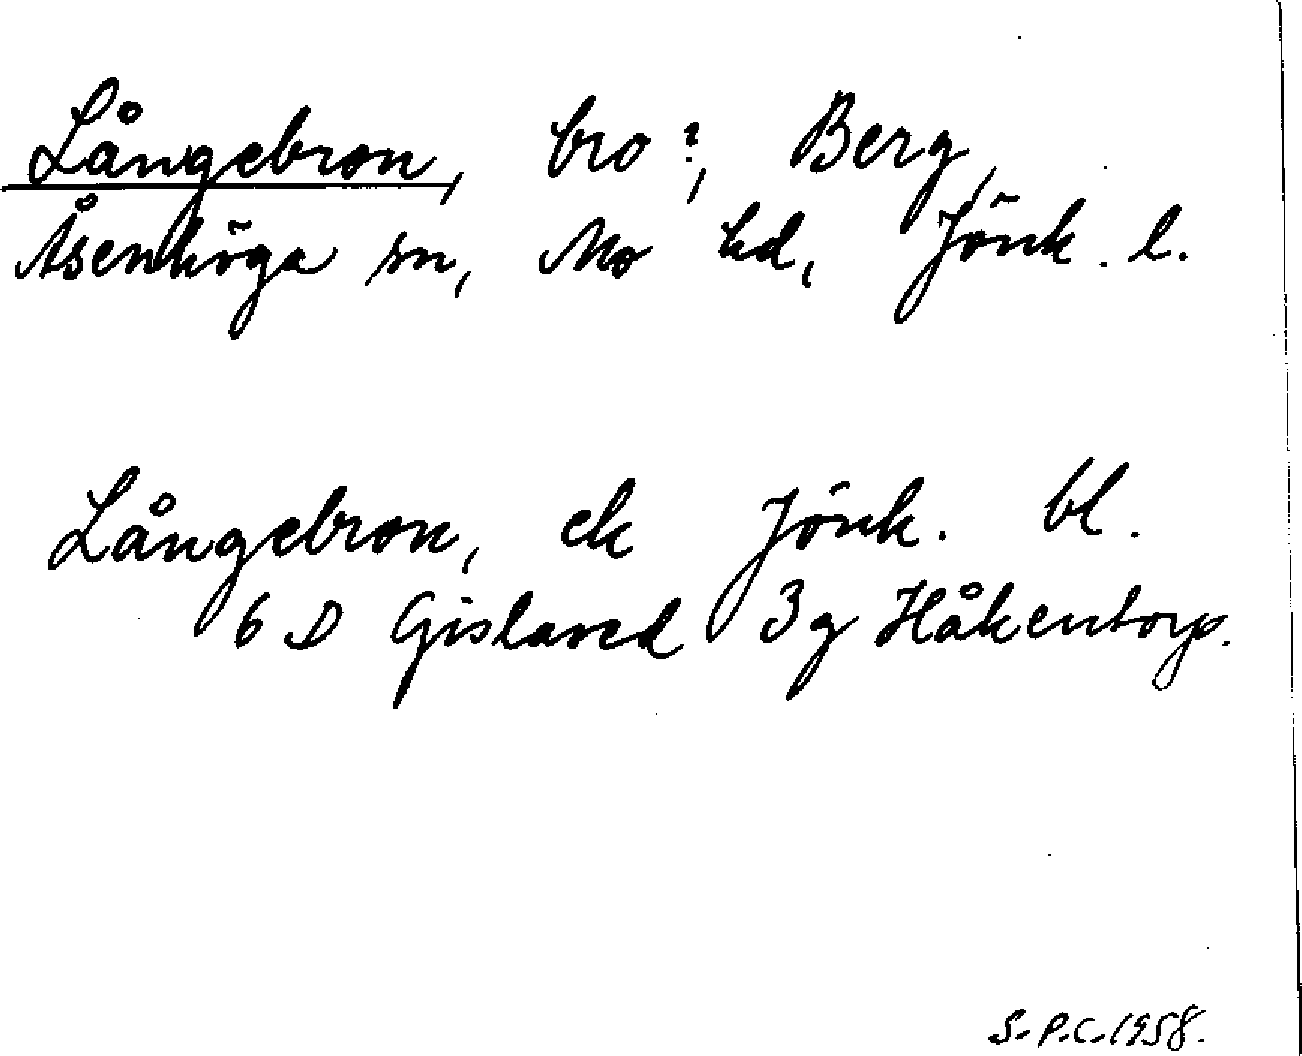 Långebron, bro?, Berg,
Åsenhöga sn, Mo hd, Jönk. l.
Långebron, ek Jönk. bl.
6 D Gislaved 3g Håkentorp.
S.P.C. 1958.